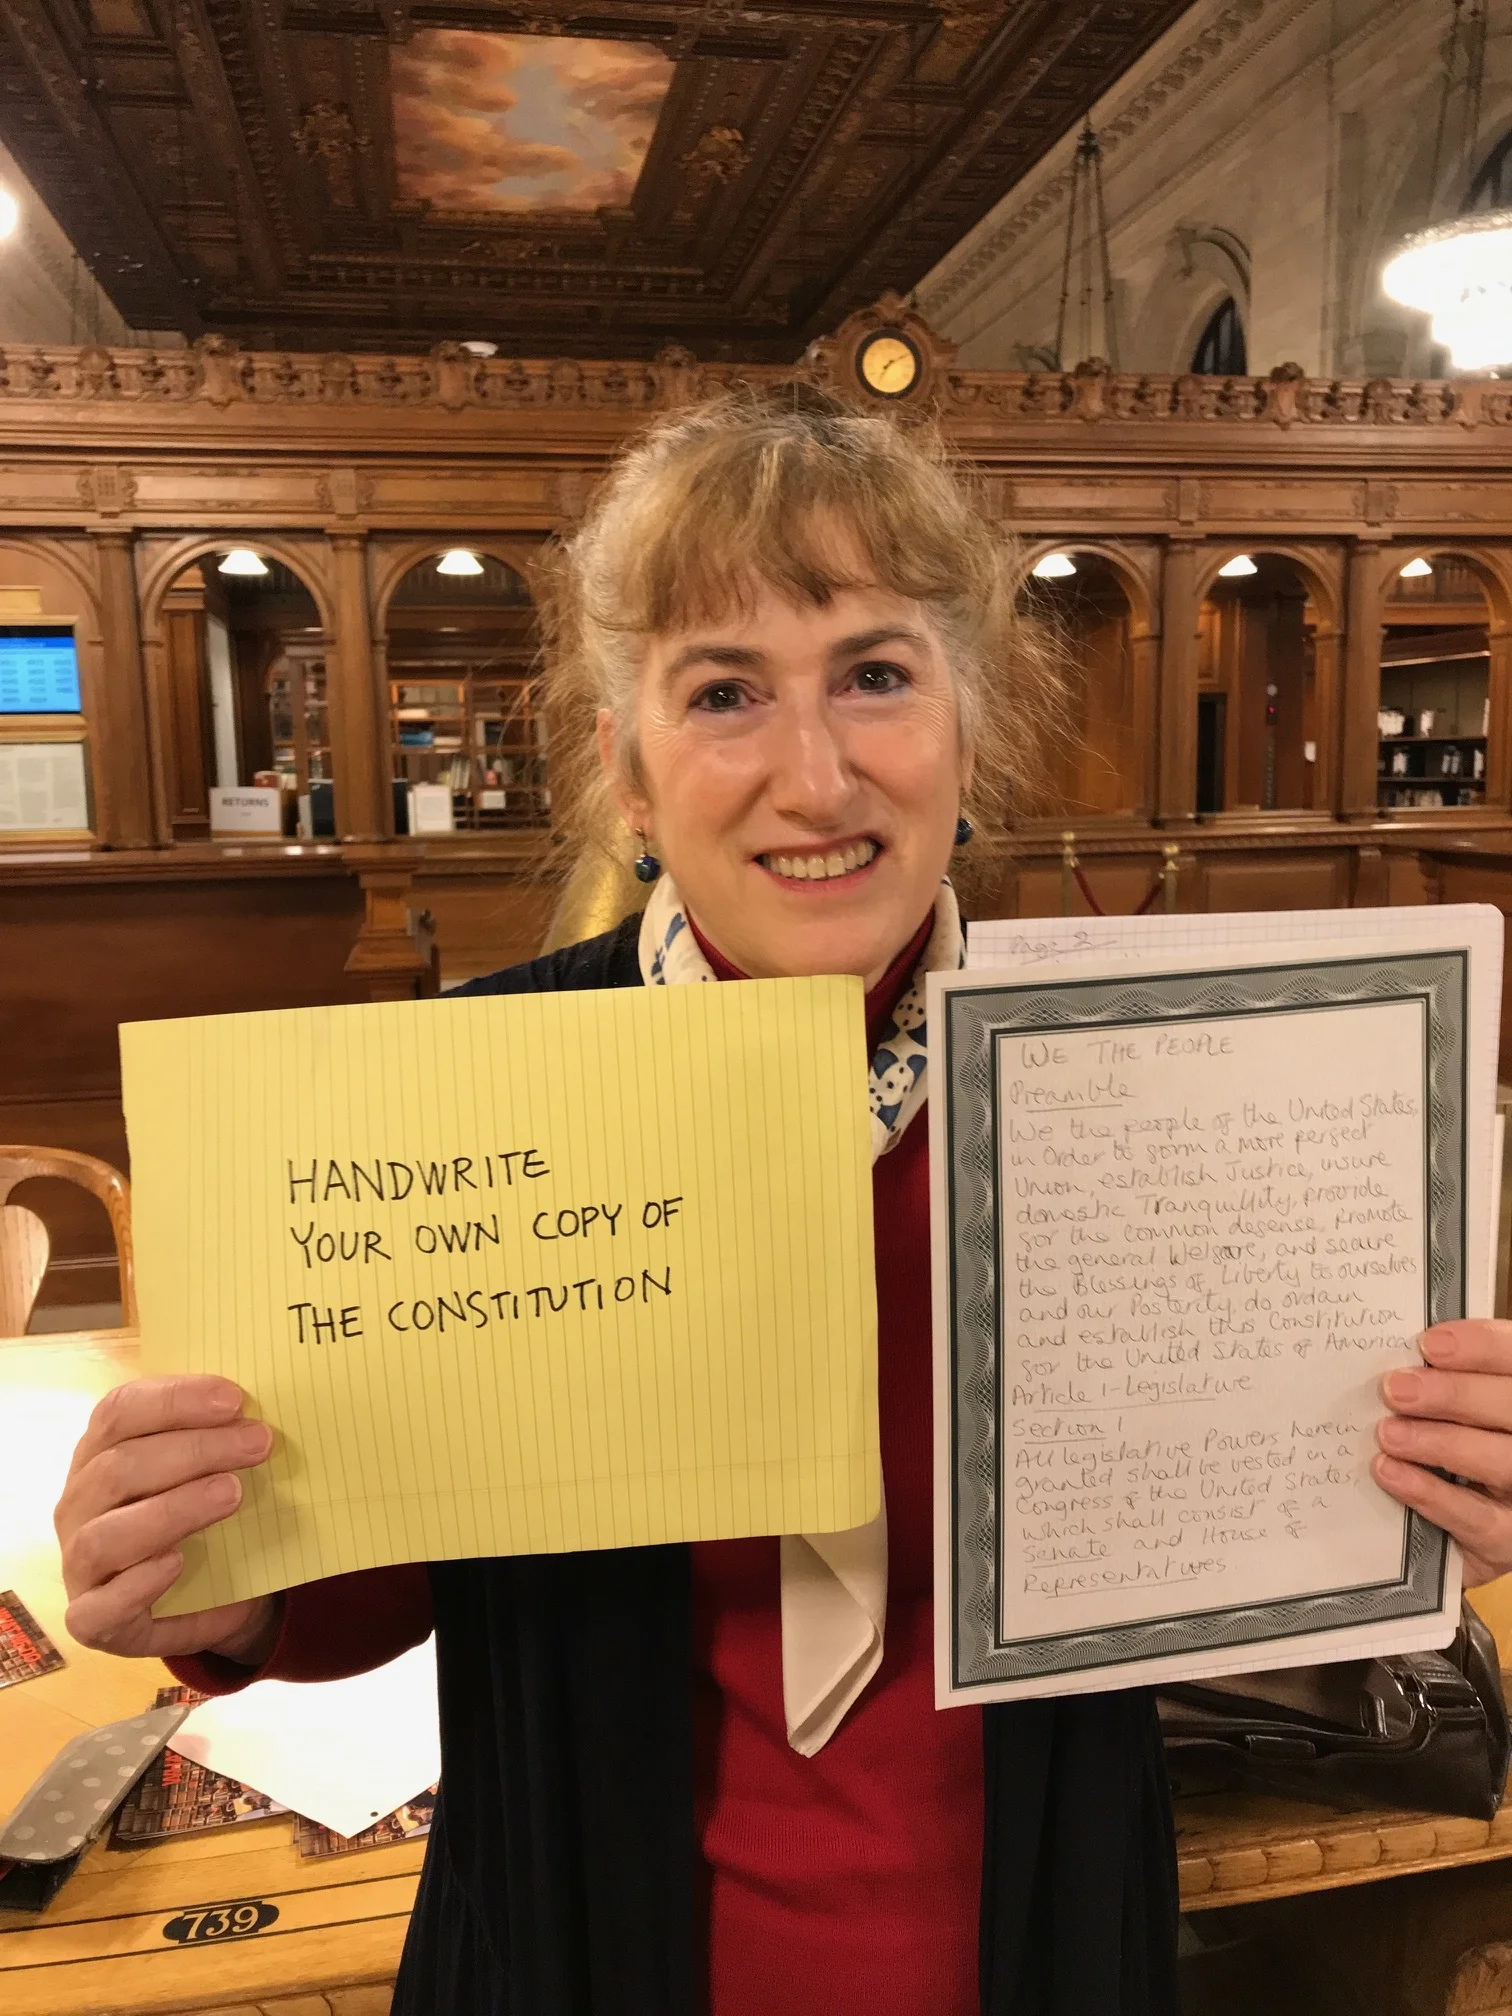 RETURNS
HANDWRITE
YOUR OWN COPY OF
THE CONSTITUTION
Page 2
WE THE PEOPLE
Preamble
We the people of the United States,
in Order to form a more perfect
Union, establish Justice, insure
domestic Tranquillity, provide
for the common defense, promote
the general Welfare, and secure
the Blessings of Liberty to ourselves
and our Posterity, do ordain
and establish this Constitution
for the United States of America
Article 1-Legislature
Section 1
All legislative Powers herein
granted shall be vested in a
Congress of the United States,
which shall consist of a
Senate and House of
Representatives
739